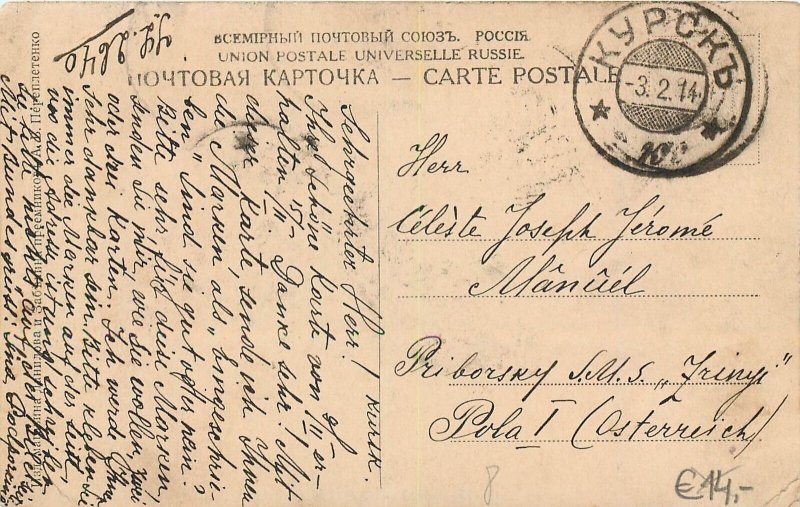 ВСЕМІРНЫЙ ПОЧТОВЫЙ СОЮЗЪ. РОССІЯ.
UNION POSTALE UNIVERSELLE RUSSIE.
ПОЧТОВАЯ КАРТОЧКА — CARTE POSTALE
КУРСКЪ
-3.2.14
Herr
Céleste Joseph Jéromé
Mânûél
Priborsky S.M.S. „Zrinyi"
Pola I (Österreich)
8
€14,-
Kursk.
Sehrgeehrter Herr!
Ihre schöne Karte von
halten. Danke sehr! Mit
dieser Karte sende ich Ihnen
de Marken, als „Eingeschrie-
ben". Sind sie gut oder nein?
Bitte sehr für diese Marken,
senden Sie mir, wie Sie wollen, zwei
oder drei Karten. Ich werde Ihnen
sehr dankbar sein. Bitte kleben Sie
immer die Marken auf der Seite,
wo die Adresse
Mit Bundesgruss: